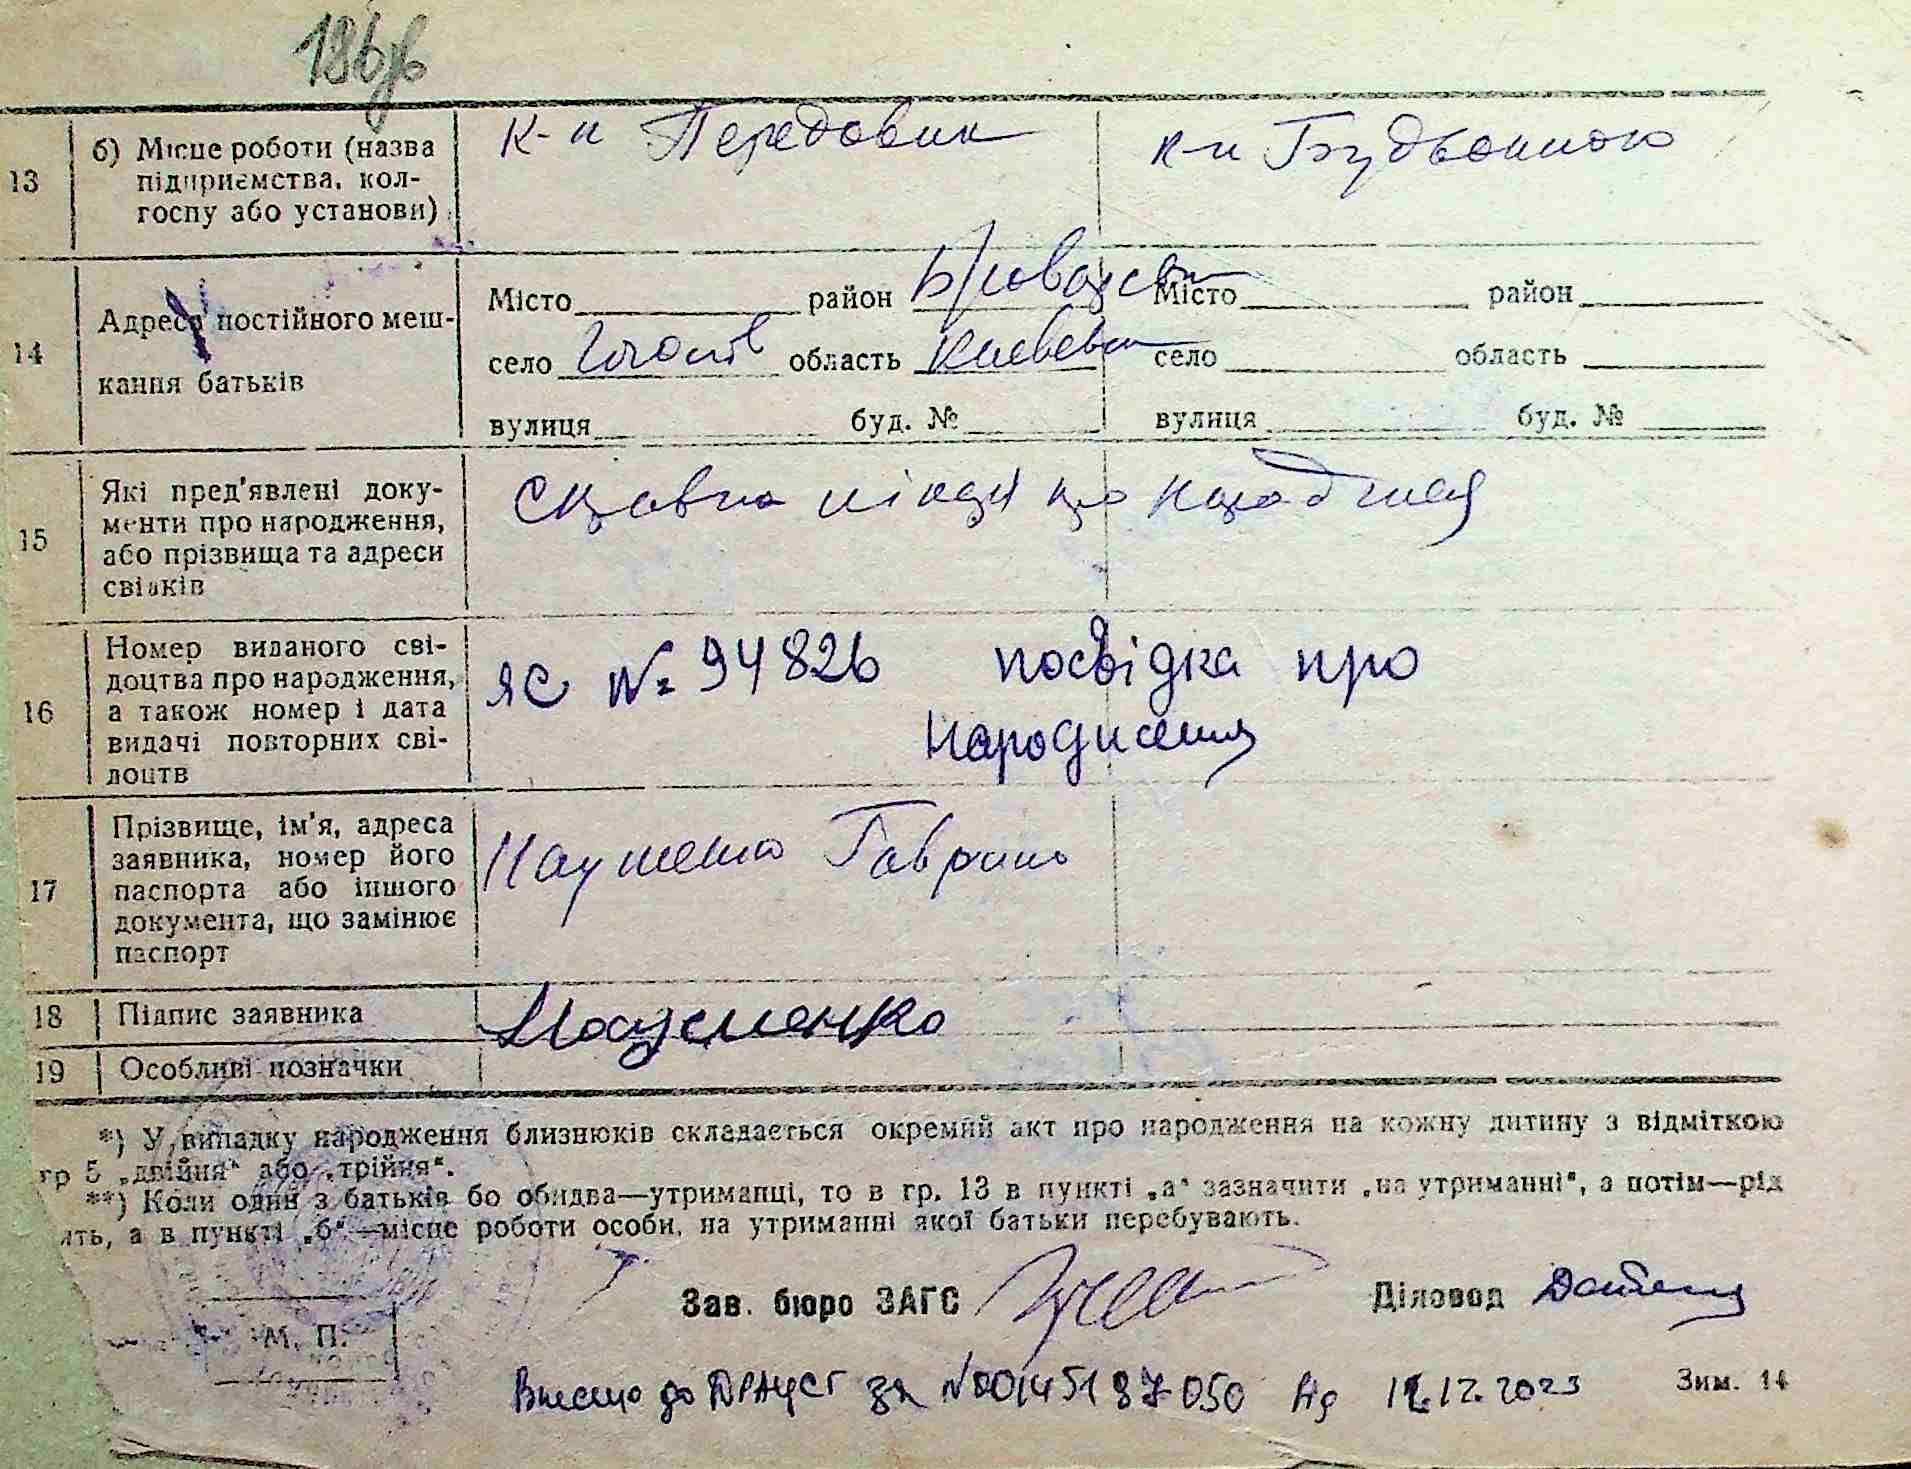 13 б) Місце роботи (назва підприємства, колгоспу або установи) к-п Передовик к-п Будьонного
14 Адреса постійного мешкання батьків
Місто район Броварськ Місто район
село Гоголів область Киевськ село область
вулиця буд. № вулиця буд. №
15 Які пред'явлені документи про народження, або прізвища та адреси свідків
Справка про
16 Номер виданого свідоцтва про народження, а також номер і дата видачі повторних свідоцтв
ЯС № 94826 посвідка про
народження
17 Прізвище, ім'я, адреса заявника, номер його паспорта або іншого документа, що замінює паспорт
Науменко Гаврило
18 Підпис заявника Науменко
19 Особливі позначки
*) У випадку народження близнюків складається окремий акт про народження на кожну дитину з відміткою
гр 5 „двійня“ або „трійня“.
**) Коли один з батьків бо обидва—утриманці, то в гр. 13 в пункті „а“ зазначити „на утриманні“, а потім—рід
ять, а в пункті „б“—місце роботи особи, на утриманні якої батьки перебувають.
Зав. бюро ЗАГС Діловод
М. П.
Внесено до ДРАЦСГ за №00145187050 від 12.12.2023 Зим. 14